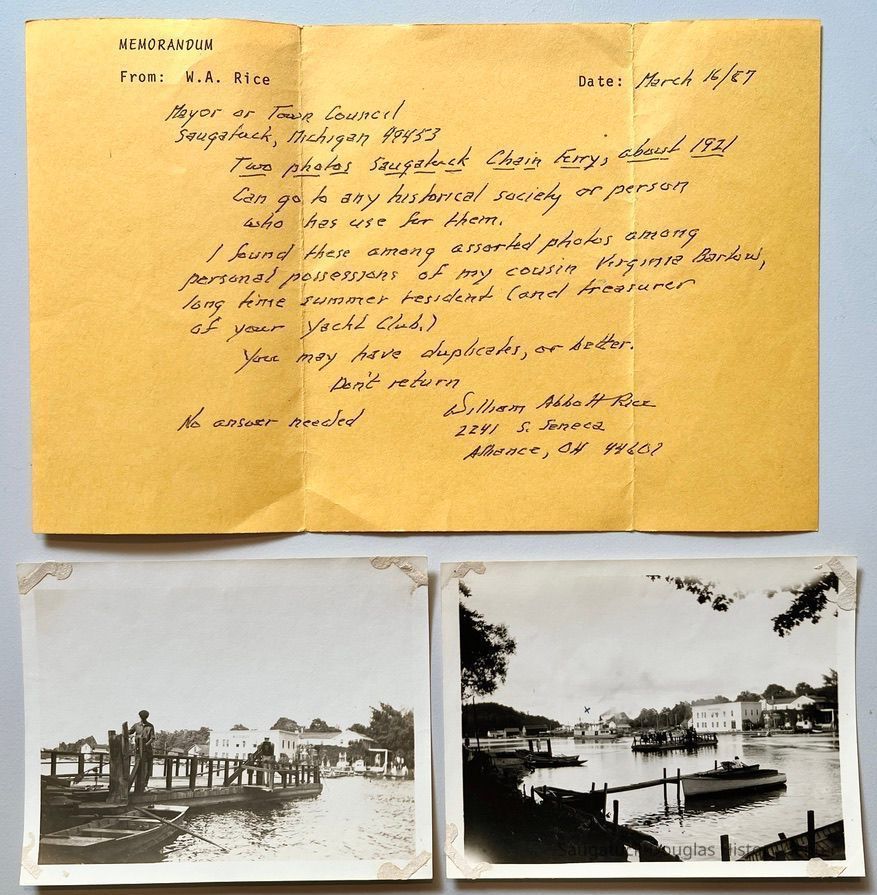 MEMORANDUM
From: W.A. Rice
Date: March 16/87
Mayor or Town Council
Saugatuck, Michigan 49453
Two photos Saugatuck Chain Ferry, about 1921
Can go to any historical society or person
who has use for them.
I found these among assorted photos among
personal possessions of my cousin Virginia Barlow,
long time summer resident (and treasurer
of your Yacht Club.)
You may have duplicates, or better.
Don't return
No answer needed
William Abbott Rice
2241 S. Seneca
Alliance, OH 44601
x
Saugatuck Douglas Histo